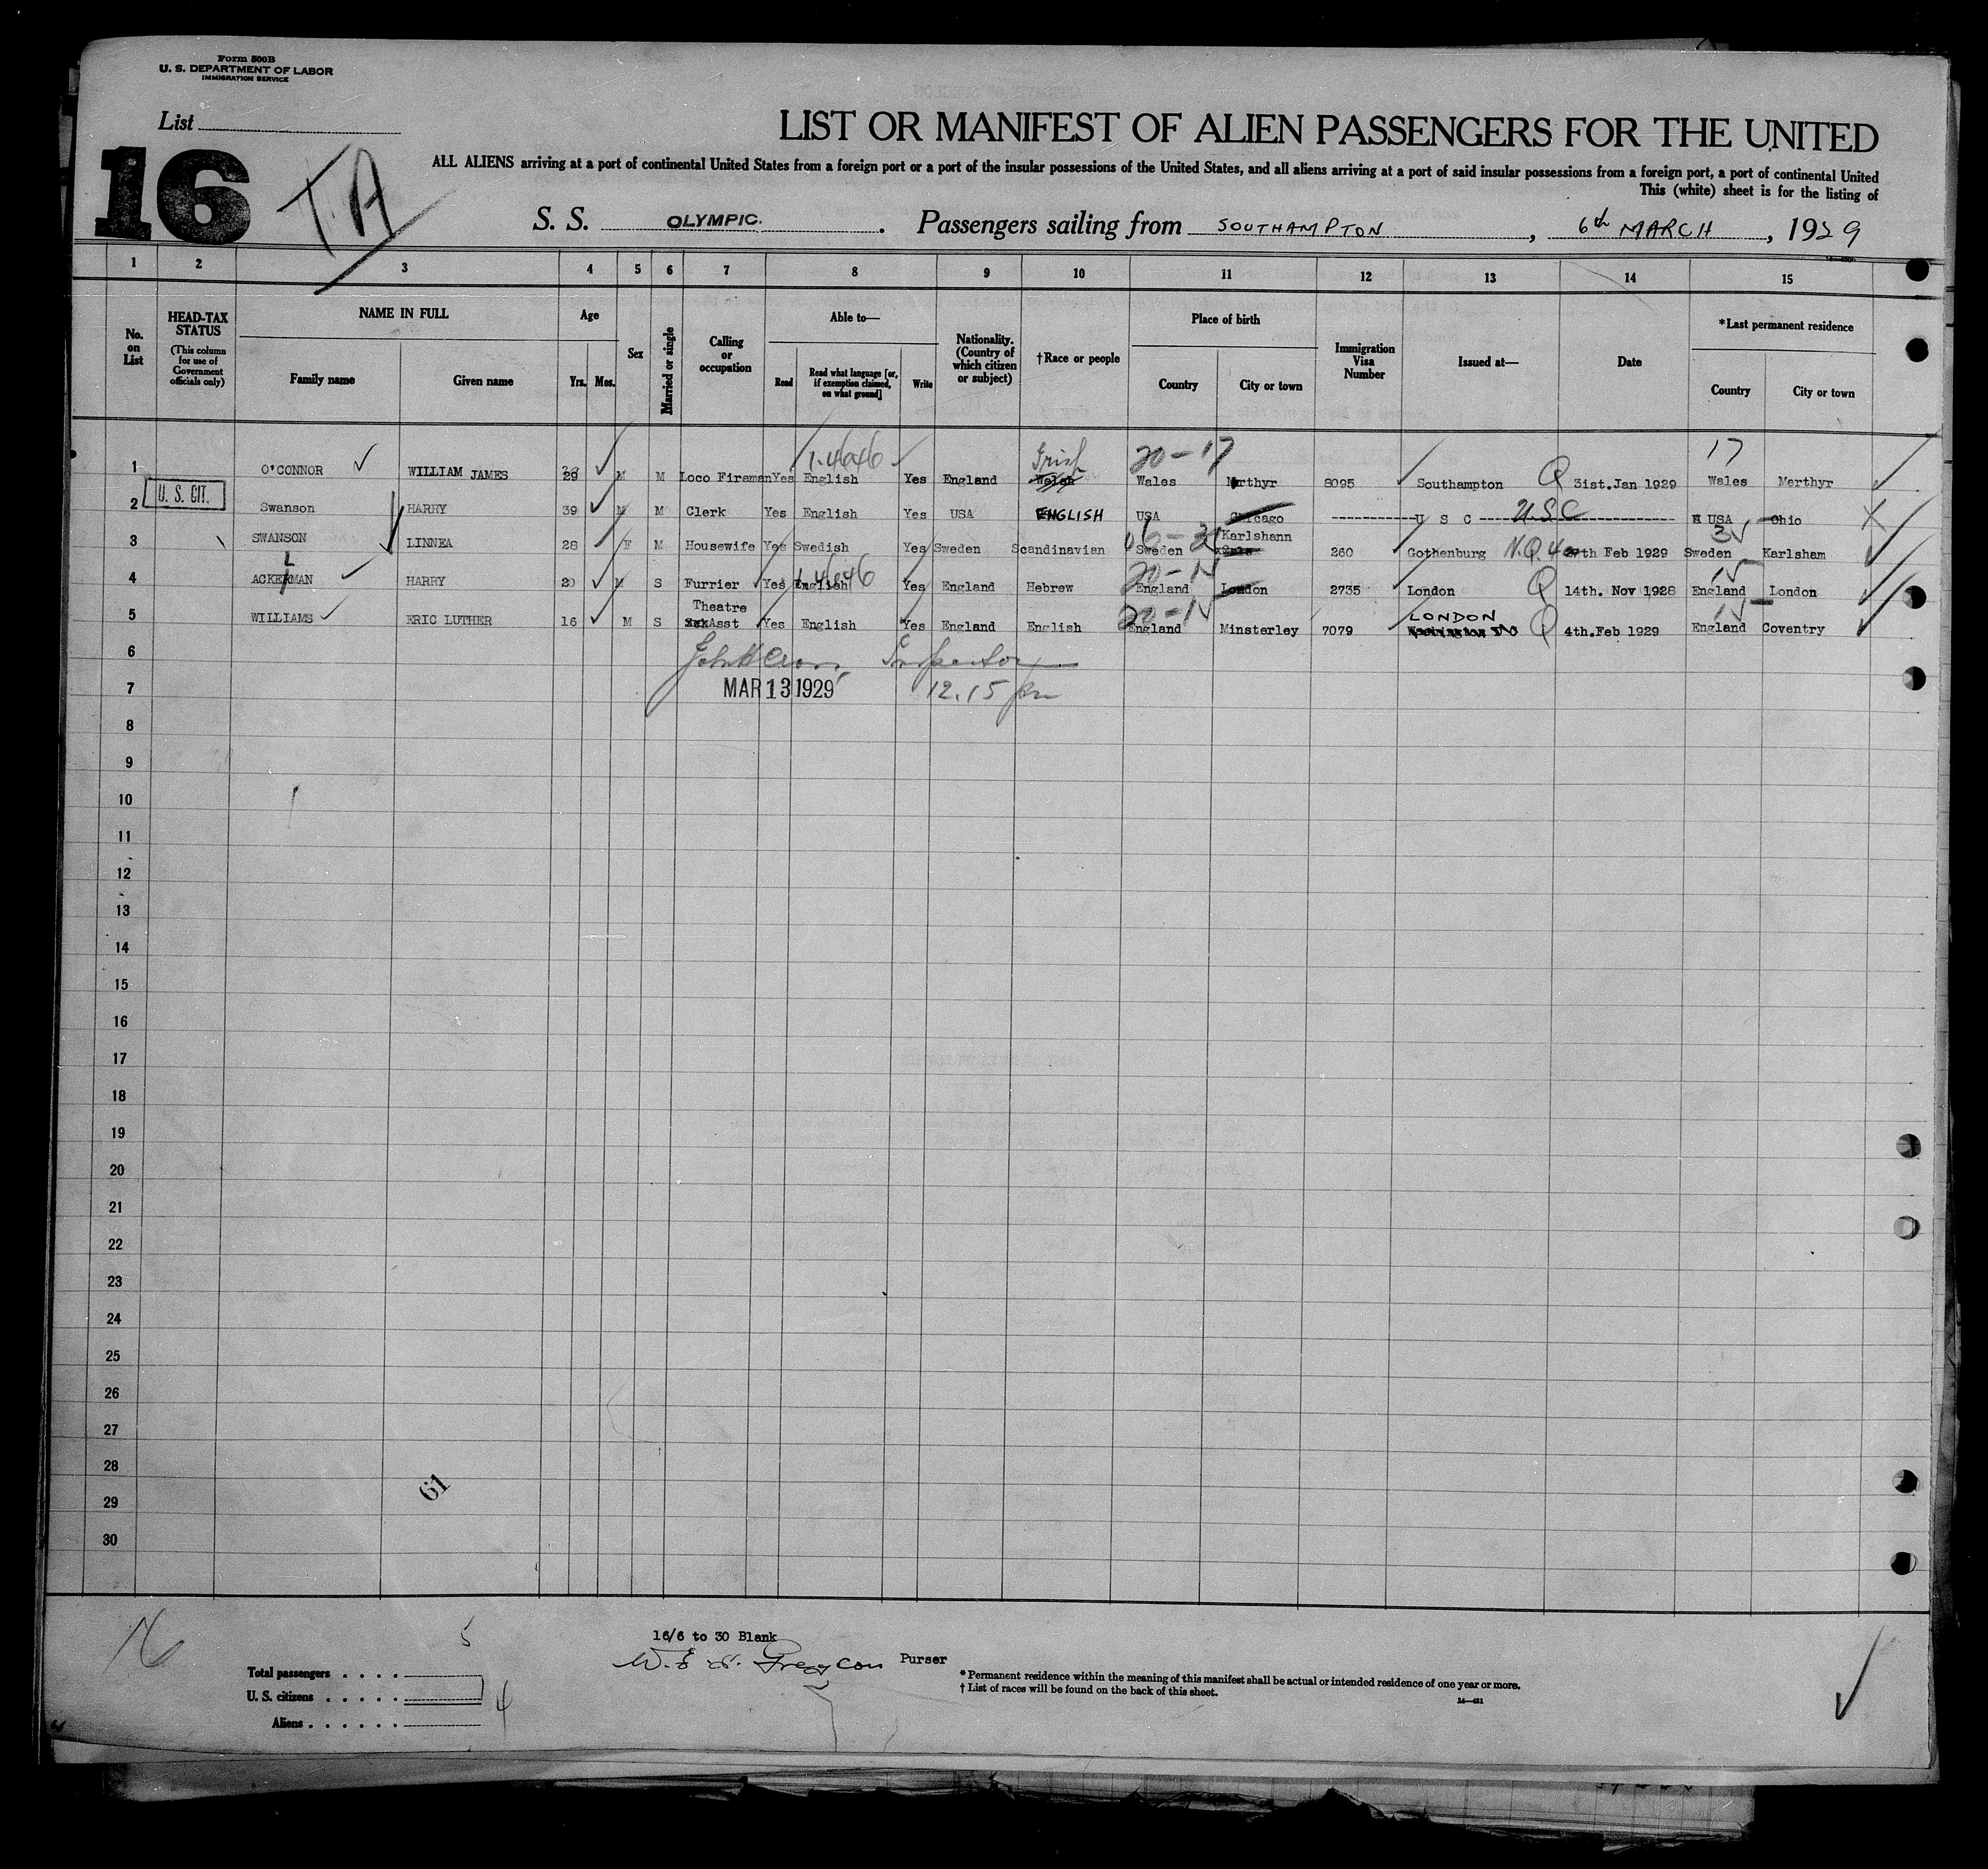 Form 500B
U. S. DEPARTMENT OF LABOR
IMMIGRATION SERVICE
List
16
T.A
LIST OR MANIFEST OF ALIEN PASSENGERS FOR THE UNITED
ALL ALIENS arriving at a port of continental United States from a foreign port or a port of the insular possessions of the United States, and all aliens arriving at a port of said insular possessions from a foreign port, a port of continental United
This (white) sheet is for the listing of
S. S. OLYMPIC. Passengers sailing from SOUTHAMPTON, 6th MARCH, 1929
1 2 3 4 5 6 7 8 9 10 11 12 13 14 15
No. on List
HEAD-TAX STATUS
(This column for use of Government officials only)
NAME IN FULL
Family name Given name
Age
Yrs. Mos.
Sex
Married or single
Calling or occupation
Able to—
Read Read what language [or, if exemption claimed, on what ground] Write
Nationality. (Country of which citizen or subject)
†Race or people
Place of birth
Country City or town
Immigration Visa Number
Issued at—
Date
*Last permanent residence
Country City or town
1.4646 Irish 20-17 17
1 O'CONNOR WILLIAM JAMES 29 M M Loco Fireman Yes English Yes England Welsh Wales Merthyr 8095 Southampton Q 31st.Jan 1929 Wales Merthyr
U. S. CIT.
2 Swanson HARRY 39 M M Clerk Yes English Yes USA ENGLISH USA Chicago U S C U.S.C USA Ohio
3 SWANSON LINNEA 28 F M Housewife Yes Swedish Yes Sweden Scandinavian Sweden Karlshann 260 Gothenburg N.Q 4 27th Feb 1929 Sweden Karlsham
4 ACKERMAN HARRY 20 M S Furrier Yes English Yes England Hebrew England London 2735 London Q 14th. Nov 1928 England London
5 WILLIAMS ERIC LUTHER 16 M S Theatre Asst Yes English Yes England English England Minsterley 7079 LONDON Q 4th.Feb 1929 England Coventry
6 Inspector
7 MAR 13 1929 12.15 pm
8
9
10
11
12
13
14
15
16
17
18
19
20
21
22
23
24
25
26
27
28
29
30
61
16
5
16/6 to 30 Blank
Purser
Total passengers
U. S. citizens 1
Aliens 4
* Permanent residence within the meaning of this manifest shall be actual or intended residence of one year or more.
† List of races will be found on the back of this sheet.